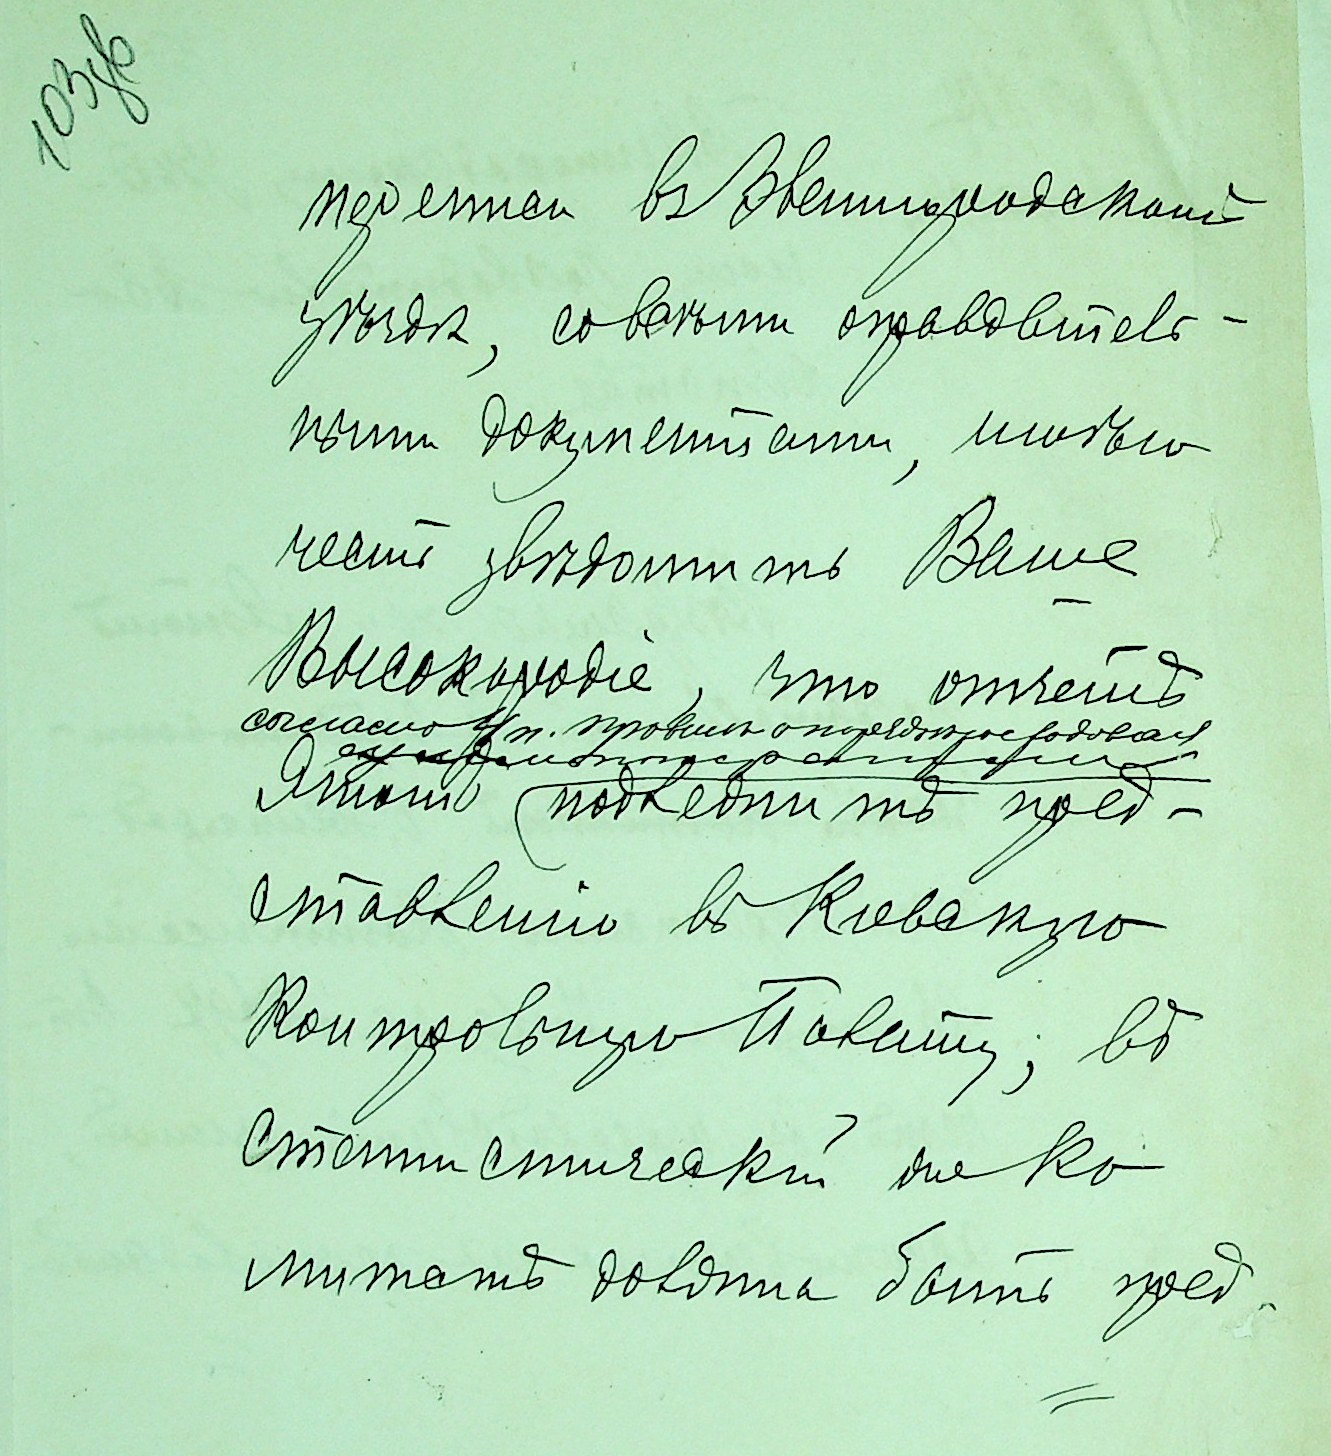 103 об
переписи въ Звенигородскомъ
уѣздѣ, со всѣми оправдатель-
ными документами, имѣю
честь увѣдомить Ваше
Высокородіе, что отчетъ
согласно п. правилъ о порядкѣ расходованія
этотъ подлежитъ пред-
ставленію въ Кіевскую
Контрольную Палату; въ
Статистическій же Ко
митетъ должна быть пред